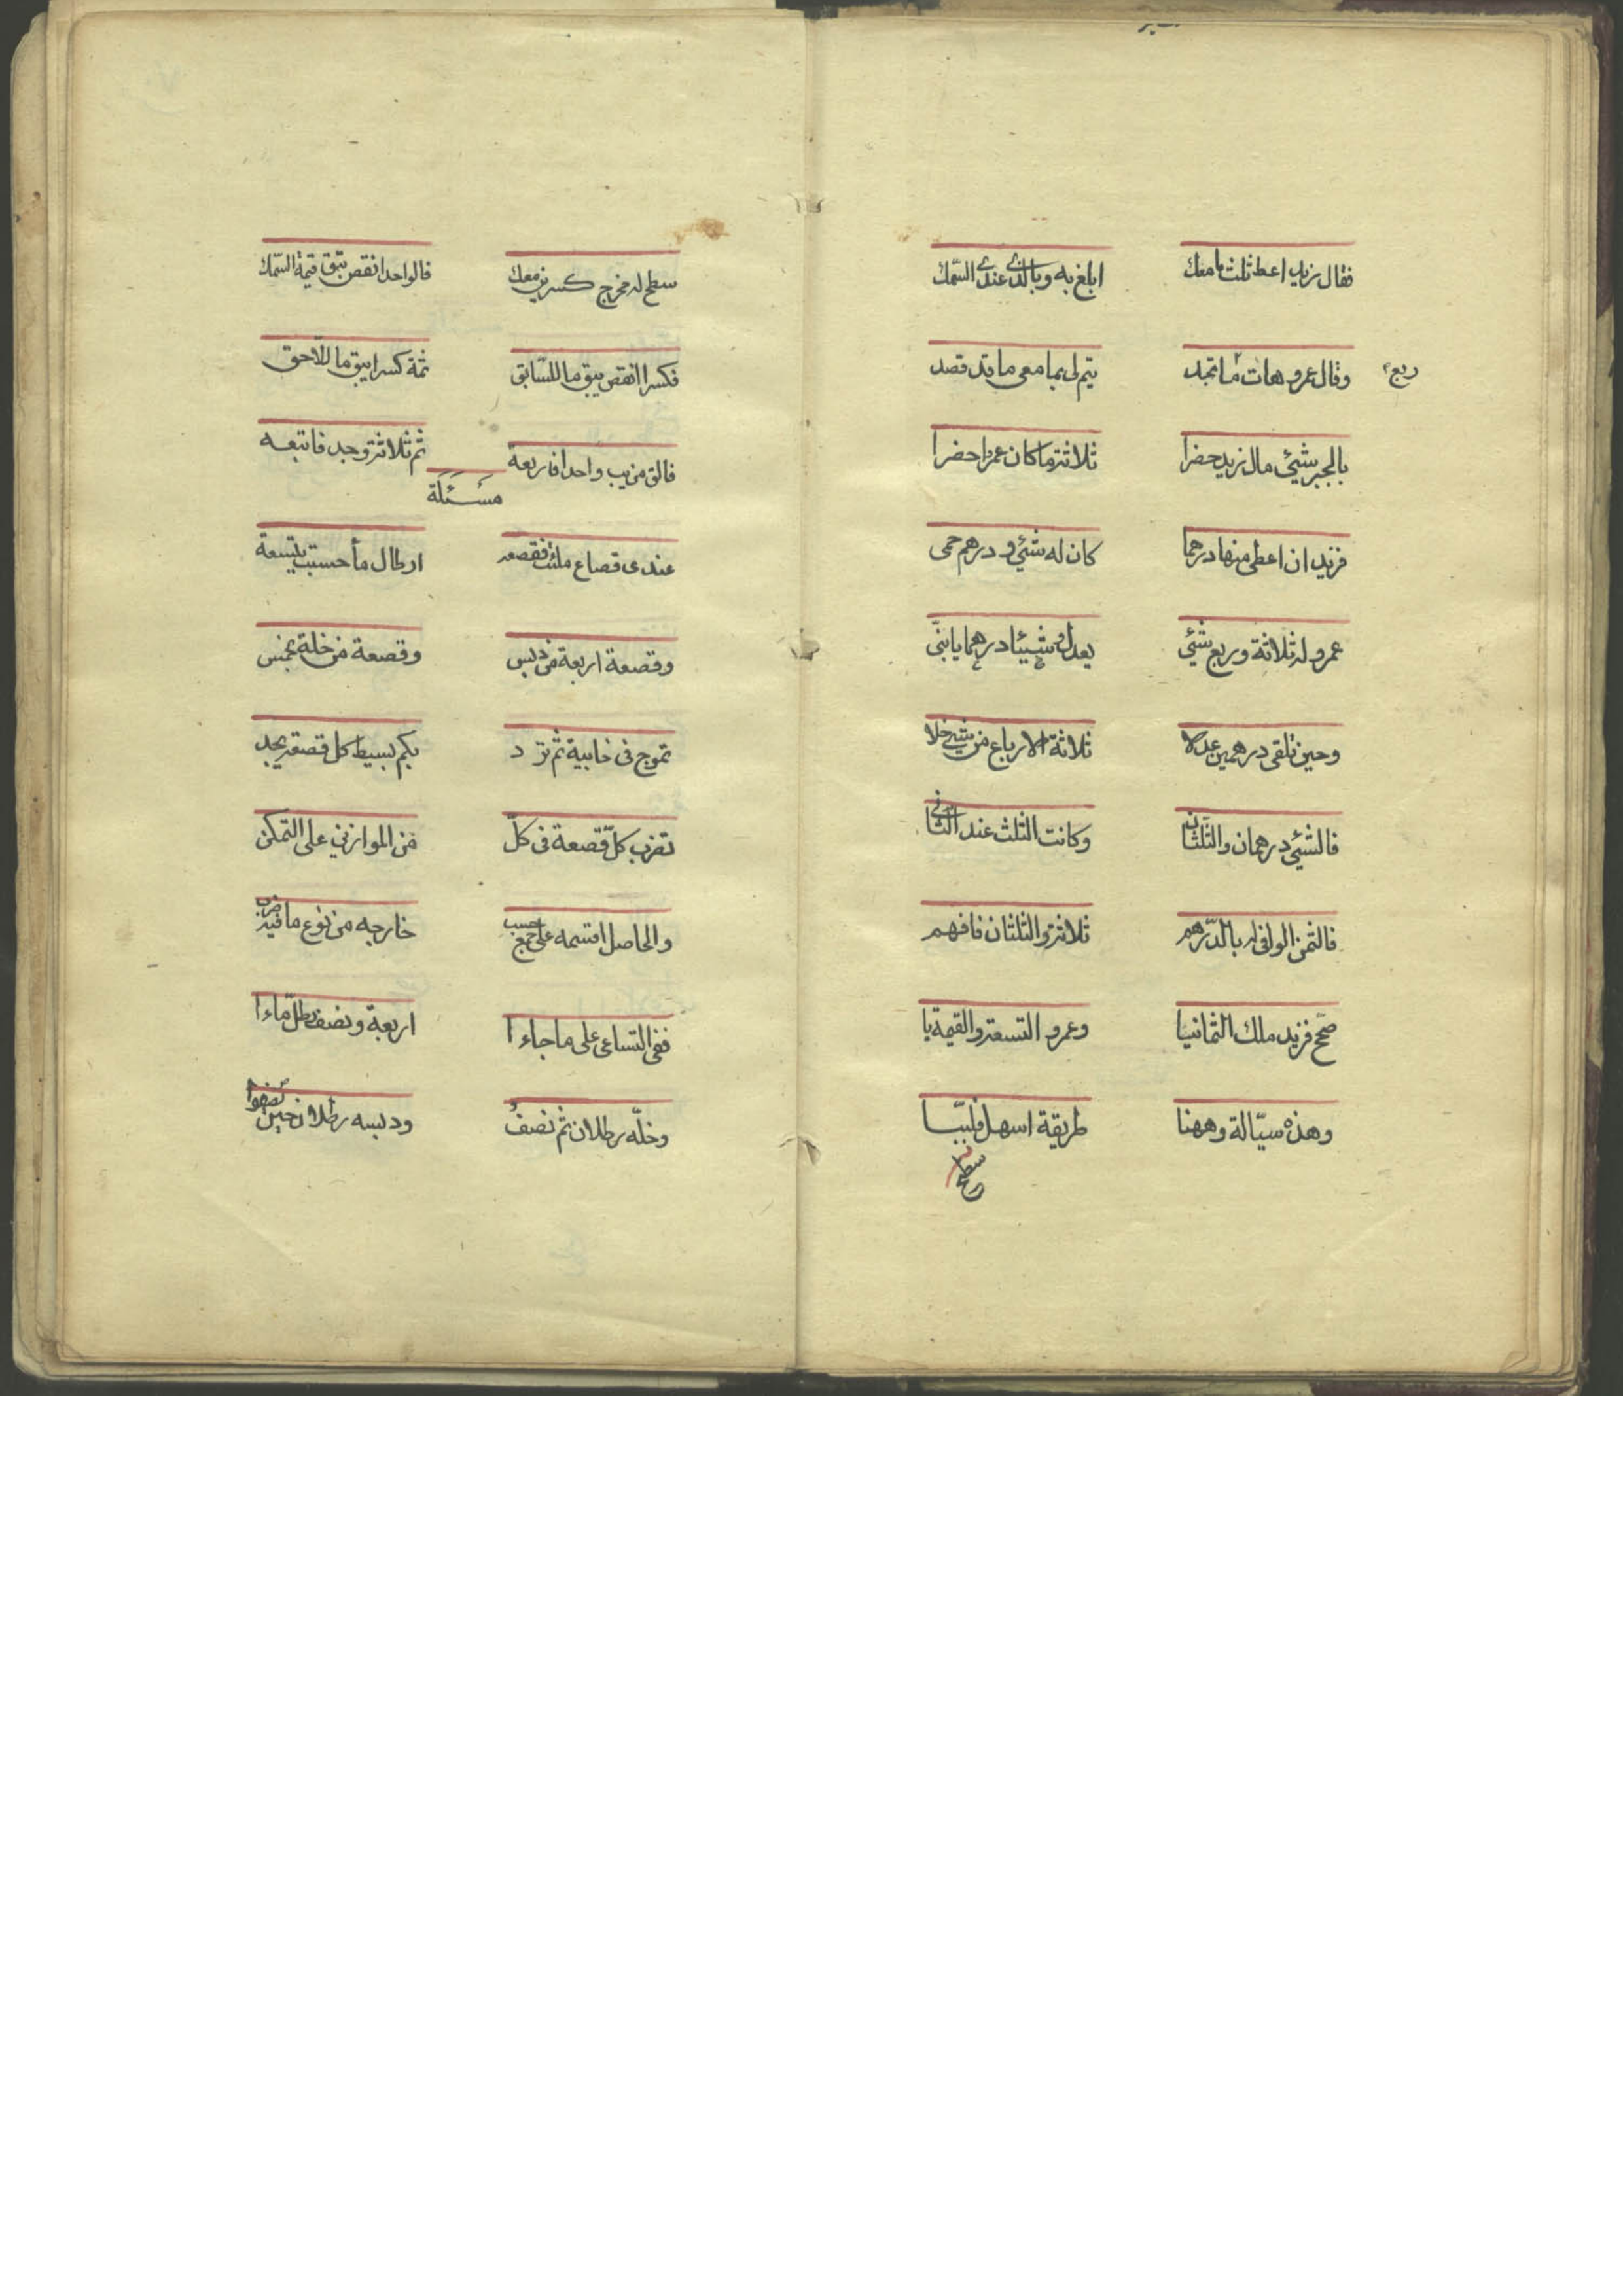 فقال زيد اعط ثلث ما معك ابلغ به وبالذى عندى السّمك
وقال عمرو هات ممّا تجد يتم لى بما معى ما قد قصد
ربع
بالجبر شيئ مال زيد حضرا ثلاثة ما كان عمرا حضرا
فزيد ان اعطى منها درهما كان له شيئ ودرهم حمى
عمرو له ثلاثة وربع شيئ يعدل شيئا درهما يا بنىّ
وحين تلقى درهمين عدلا ثلاثة الارباع من شيئ خلا
فالشيئ درهمان والثّلثان وكانت الثلث عند الثّانى
فالثمن الوافى له بالدّرهم ثلاثة والثلثان فافهم
صحّح فزيد ملك الثمانيا وعمرو التسعة والقيمة يا
وهذه سيّالة وههنا طريقة اسهل
سطح
سطح له مخرج كسرين معك فالواحد انقص تبق قيمة السّمك
فكسرا انقص يبق ما للسّابق ثمة كسرا يبق ما للاّحق
فالق من يب واحدا فاربعة ثم ثلاثة وجد فاتبعه
مسئلة
عندى قصاع ملئت فقصعه ارطال ماء حسبت بتسعة
وقصعة اربعة من دبس وقصعة من خلة بخمس
تموج فى خابية ثم ترد بكم بسيط كل قصعة يجد
تضرب كلّ قصعة فى كلّ من الموازين على التمكن
والحاصل اقسمه على جمع حسب خارجه من نوع ما فيه ضرب
ففى التساعى على ما جاءا اربعة ونصف رطل ماءا
وخلّه رطلان ثم نصف ودبسه رطلان حين